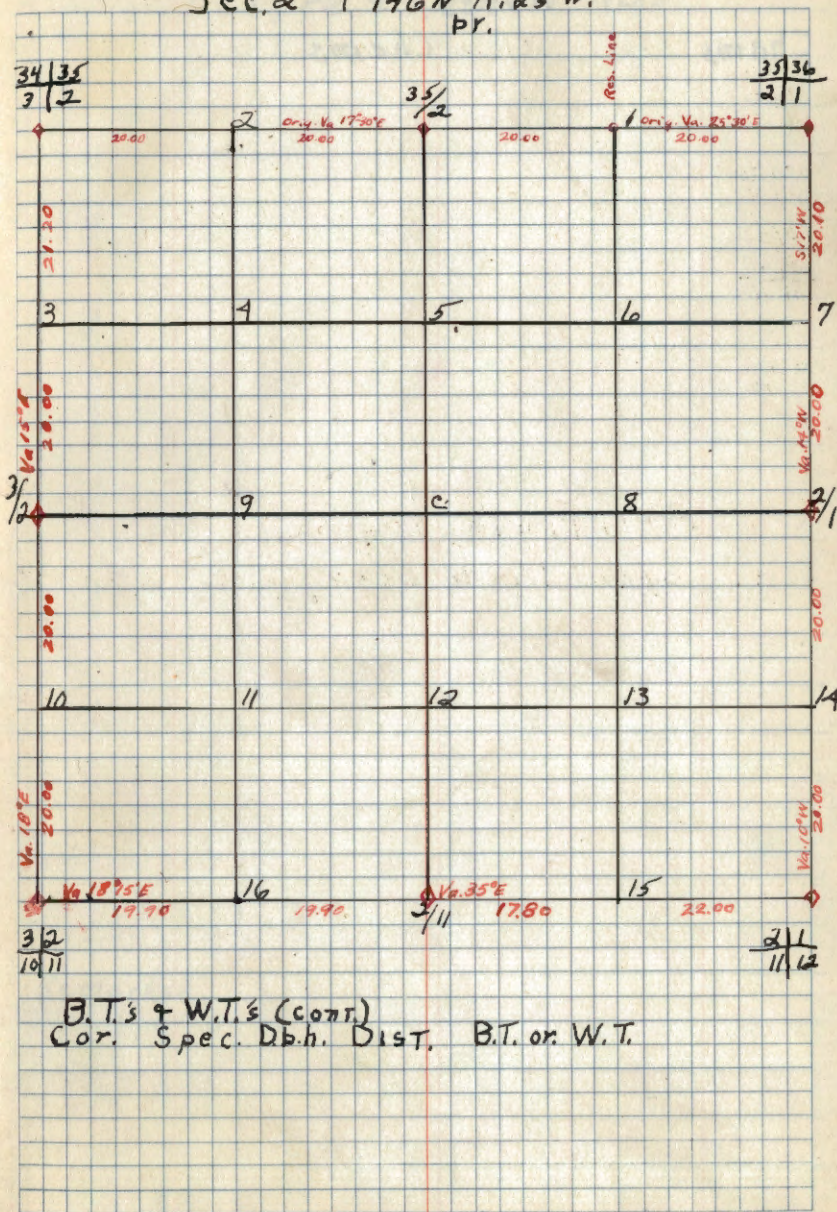 Sec. 2 T 146 N R. 25 W.
pr.
34 | 35
3 | 2
35/2
Res. Line
35 | 36
2 | 1
2 Orig. Va 17°30'E 1 Orig. Va. 25°30'E
20.00 20.00 20.00 20.00
21.20
S17'W 20.10
3 4 5 6 7
Va 15°E 20.00
Va. 14°W 20.00
3/2 9 C. 8 2/1
20.00
20.00
10 11 12 13 14
Va. 18°E 20.00
Va. 10°W 20.00
Va 18°75'E 16 Va. 35°E 15
19.90 19.90 2/11 17.80 22.00
3 | 2
10 | 11
2 | 1
11 | 12
B.T.'s & W.T.'s (cont.)
Cor. Spec. D.b.h. Dist. B.T. or W.T.